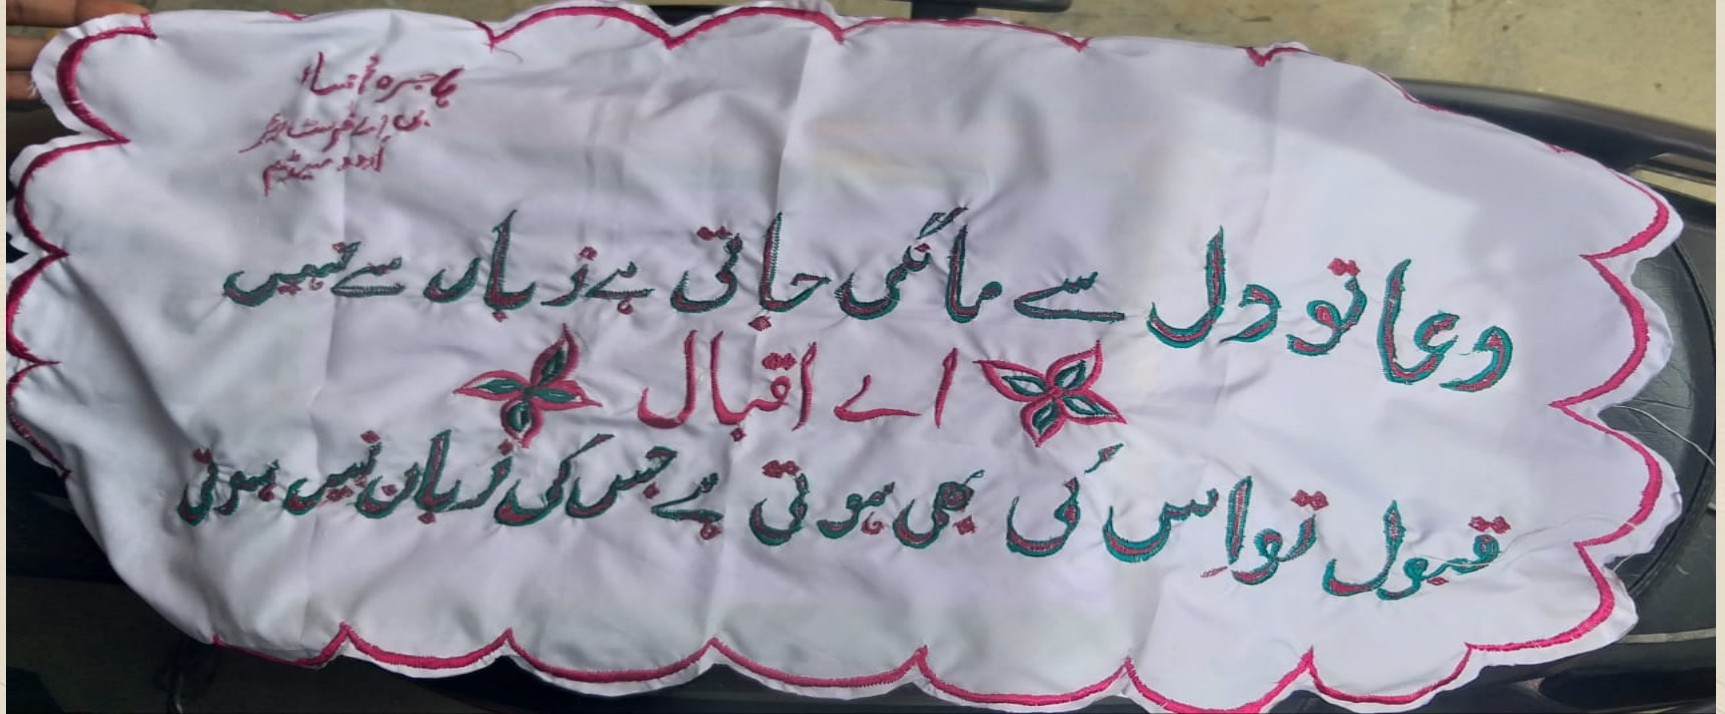 ہاجرہ النساء
بی اے فرسٹ ایئر
اُردو میڈیم
دعا تو دل سے مانگی جاتی ہے زباں سے نہیں
اے اقبال
قبول تو اِس کی بھی ہوتی ہے جس کی زبان نہیں ہوتی